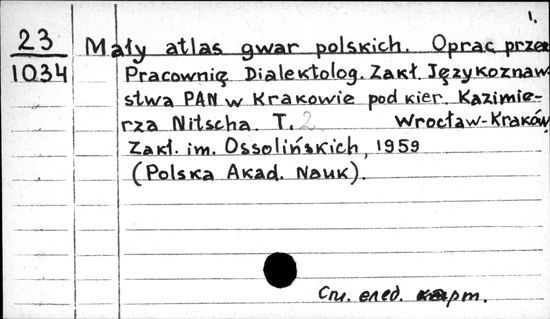 1.
23 Mały atlas gwar polskich. Oprac. przez
1034 Pracownię Dialektolog. Zakł. Językoznaw-
stwa PAN w Krakowie pod kier. Kazimie-
rza Nitscha. T. 2 Wrocław-Kraków,
Zakł. im. Ossolińskich, 1959
(Polska Akad. Nauk).
См. след. карт.